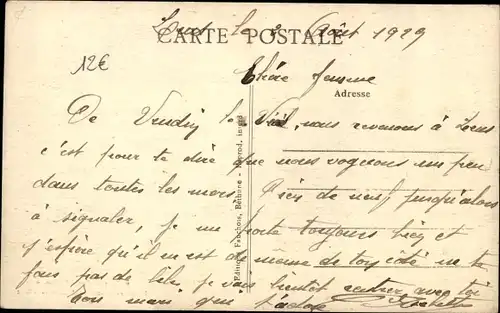 Lens le 2 Août 1929
CARTE POSTALE
12€
Chère femme
Adresse
De Vendin le Vieil, nous revenons à Lens
c'est pour te dire que nous voyageons un peu
dans toutes les mers. Rien de neuf jusqu'alors
à signaler, je me porte toujours bien et
j'espère qu'il en est de même de ton côté ne te
fais pas de bile, je vais bientôt rentrer avec toi
Ton mari que t'adore
Édition Fauchois, Béthune - Reprod. interd.